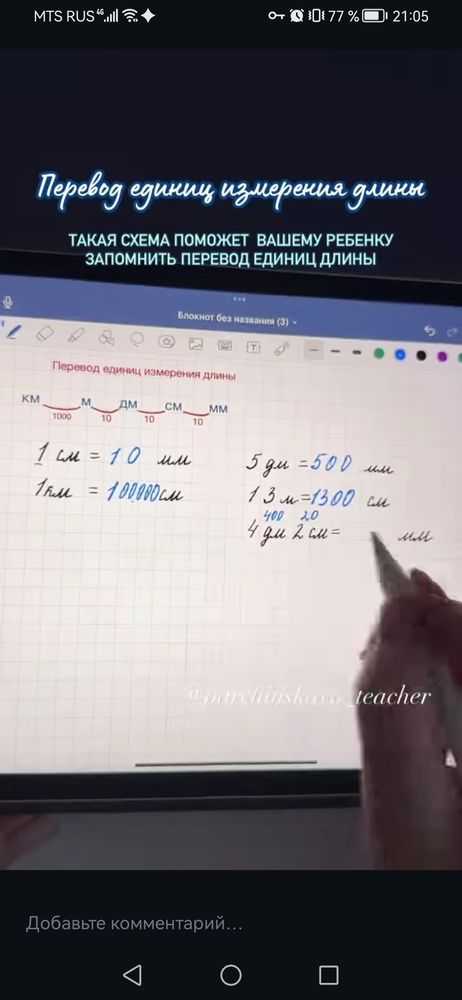 MTS RUS 4G 77 % 21:05
Перевод единиц измерения длины
ТАКАЯ СХЕМА ПОМОЖЕТ ВАШЕМУ РЕБЕНКУ
ЗАПОМНИТЬ ПЕРЕВОД ЕДИНИЦ ДЛИНЫ
Блокнот без названия (3)
Перевод единиц измерения длины
КМ М ДМ СМ ММ
1000 10 10 10
1 см = 10 мм
1км = 100000см
5 дм = 500 мм
13 м = 1300 см
400 20
4 дм 2 см = мм
_teacher
Добавьте комментарий...